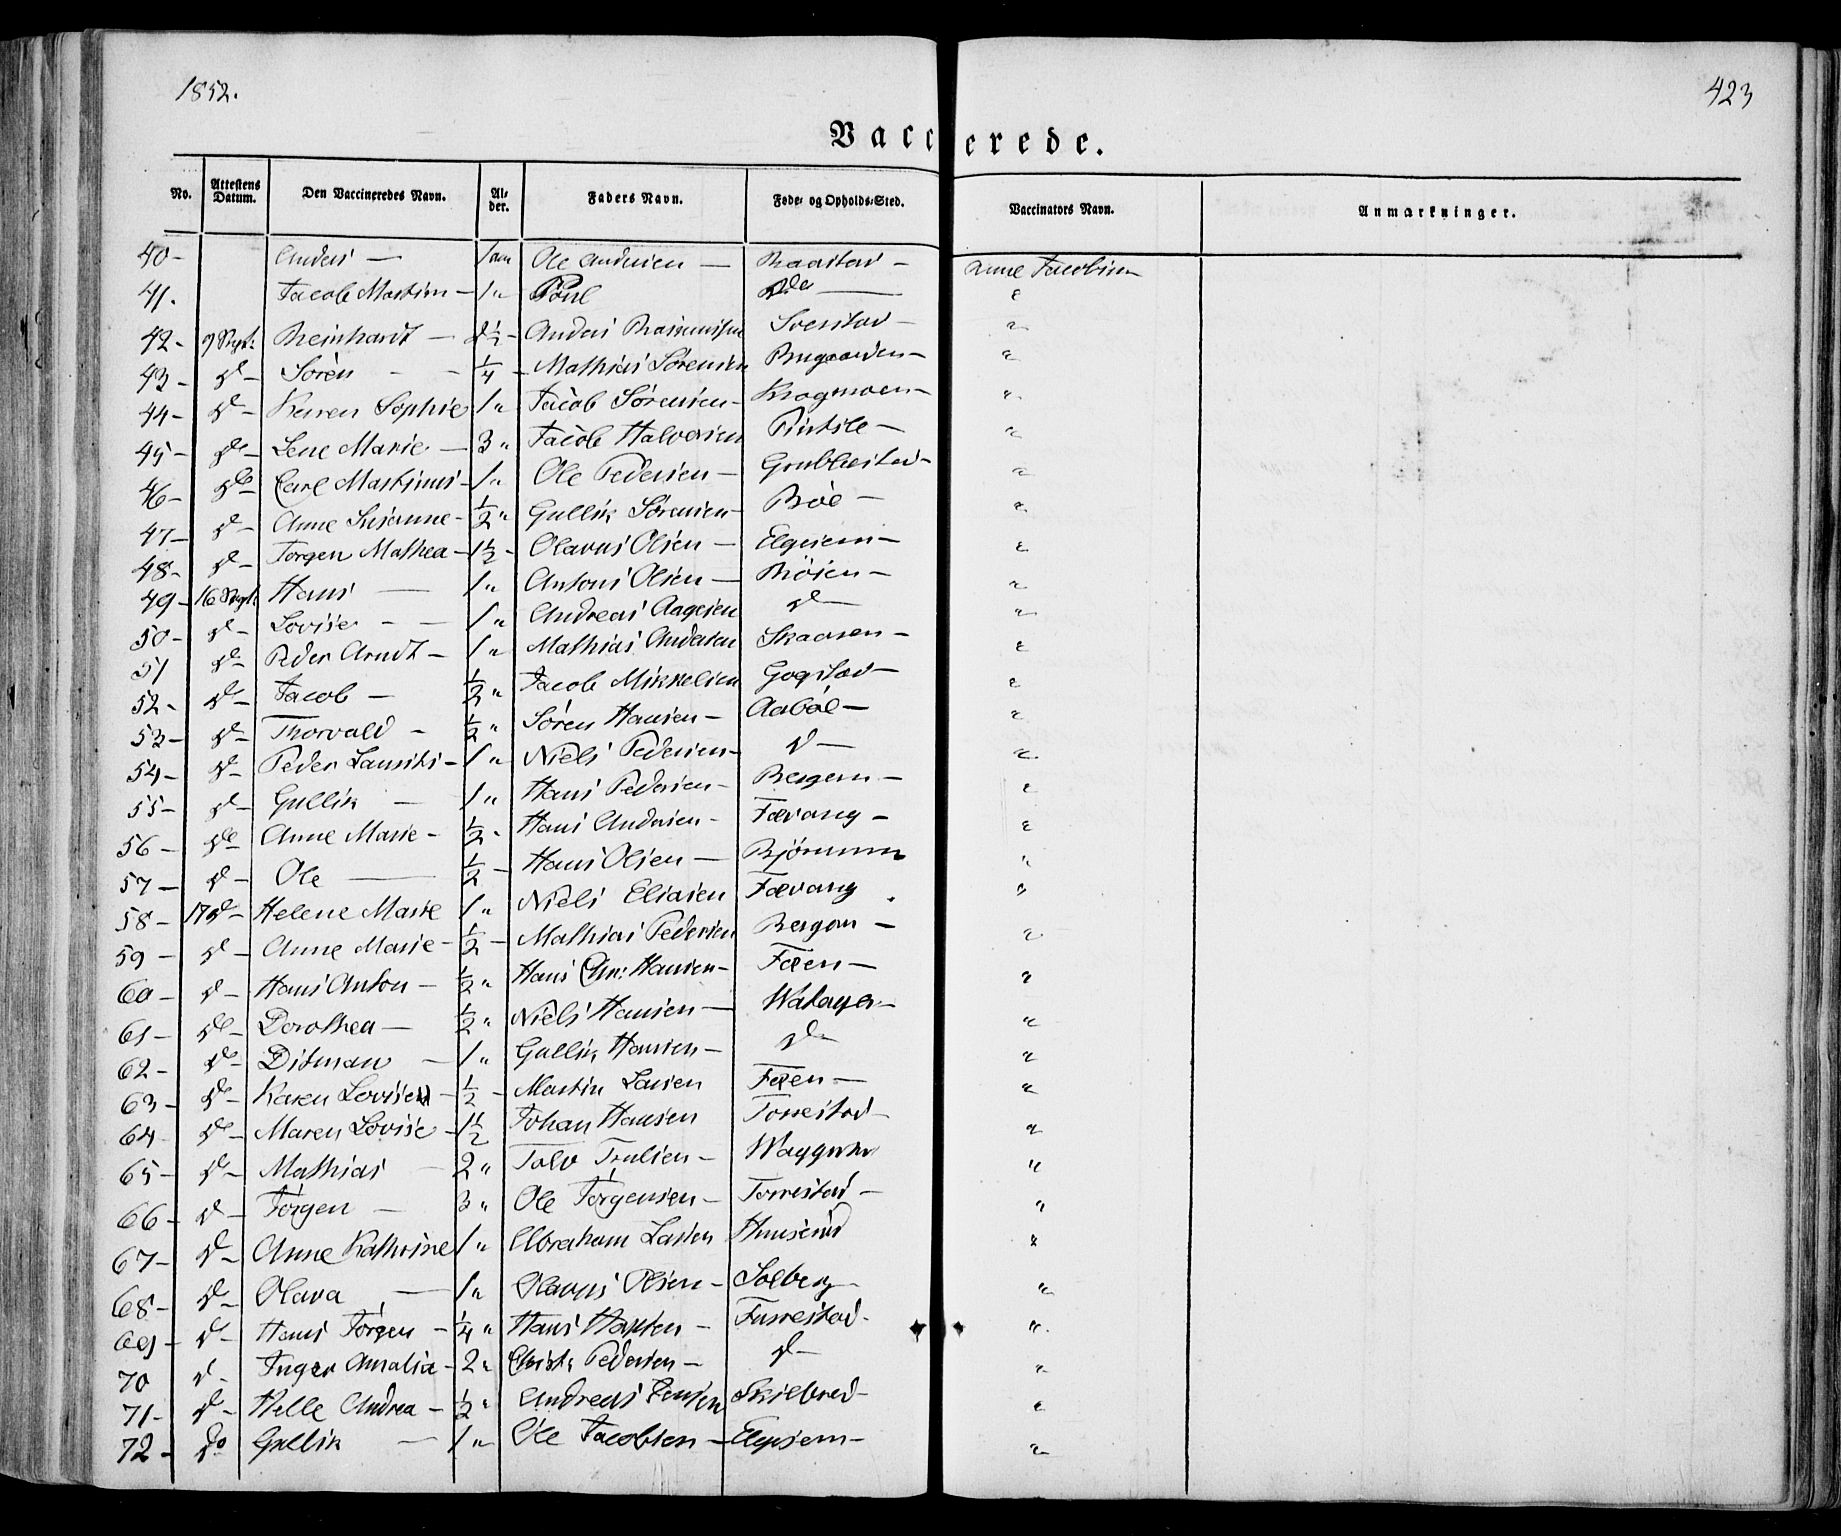 1852.
423
Vaccinerede.
No. Attestens Datum. Den Vaccineredes Navn. Alder. Faders Navn. Føde- og Opholds-Sted. Vaccinators Navn. Anmærkninger.
40- Anders — 1 aar Ole Andersen — Raastad - Anne Jacobsen
41. Jacob Martin - 1 " Poul do — "
42- 9 Sept: Reinhardt — 2½ - Anders Rasmussen Sverstad - "
43- do - Søren - - ¼ - Mathias Sørensen Brugaarden - "
44- do - Karen Sophie 1 " Jacob Sørensen - Krogmoen - "
45- do - Lene Marie - 3 " Jacob Halvorsen Pindsle - "
46- do - Carl Martinus - 1 " Ole Pedersen - Grubbestad - "
47- do - Anne Susanne - ½ " Gullik Sørensen - Bøe - "
48- do - Jørgen Mathea - 1½ - Olavus Olsen - Elgesem - "
49- 16 Sept: Hans — 1 " Antons Olsen - Bøsen - "
50- do - Lovise - - 1 " Andreas Aagesen do - "
51 do - Peder Arndt - 1 " Mathias Andersen Skaarsen - "
52- do - Jacob - ½ " Jacob Mikkelsen Gogstad - "
53- do - Thorvald - ½ " Søren Hansen - Aabøl - "
54- do - Peder Laurits - 1 " Niels Pedersen - do - "
55- do - Gullik — 1 " Hans Pedersen - Bergem - "
56- do - Anne Marie - ½ - Hans Andersen - Fevang - "
57- do - Ole — ½ - Hans Olsen — Bjørnum "
58- 17 do - Helene Marie 1 " Niels Eliasen Fevang "
59- do - Anne Marie - ½ - Mathias Pedersen Bergem - "
60- do - Hans Anton - ½ " Hans Chr: Hansen - Feen - "
61- do - Dorothea - ½ " Niels Hansen - Watager - "
62- do - Ditman - 1 " Gullik Hansen - do "
63- do - Karen Lovise - ½ - Martin Larsen Feen - "
64- do - Maren Lovise - 1½ Johan Hansen Torrestad - "
65- do - Mathias - 2 " Tolv Trulsen - "
66- do - Jørgen - 3 " Ole Jørgensen - Torrestad - "
67- do - Anne Kathrine 1 " Abraham Larsen "
68- do - Olava — 1 " Olavus Olsen - Solberg - "
69- do - Hans Jørgen - ¼ " Hans Hansen - Furrestad - "
70 do - Inger Amalia - 2 " Christ: Pedersen - do - "
71- do - Helle Andrea - ½ " Andreas Jensen Skilbred - "
72- do Gullik — 1 " Ole Jacobsen - Elgesem - "